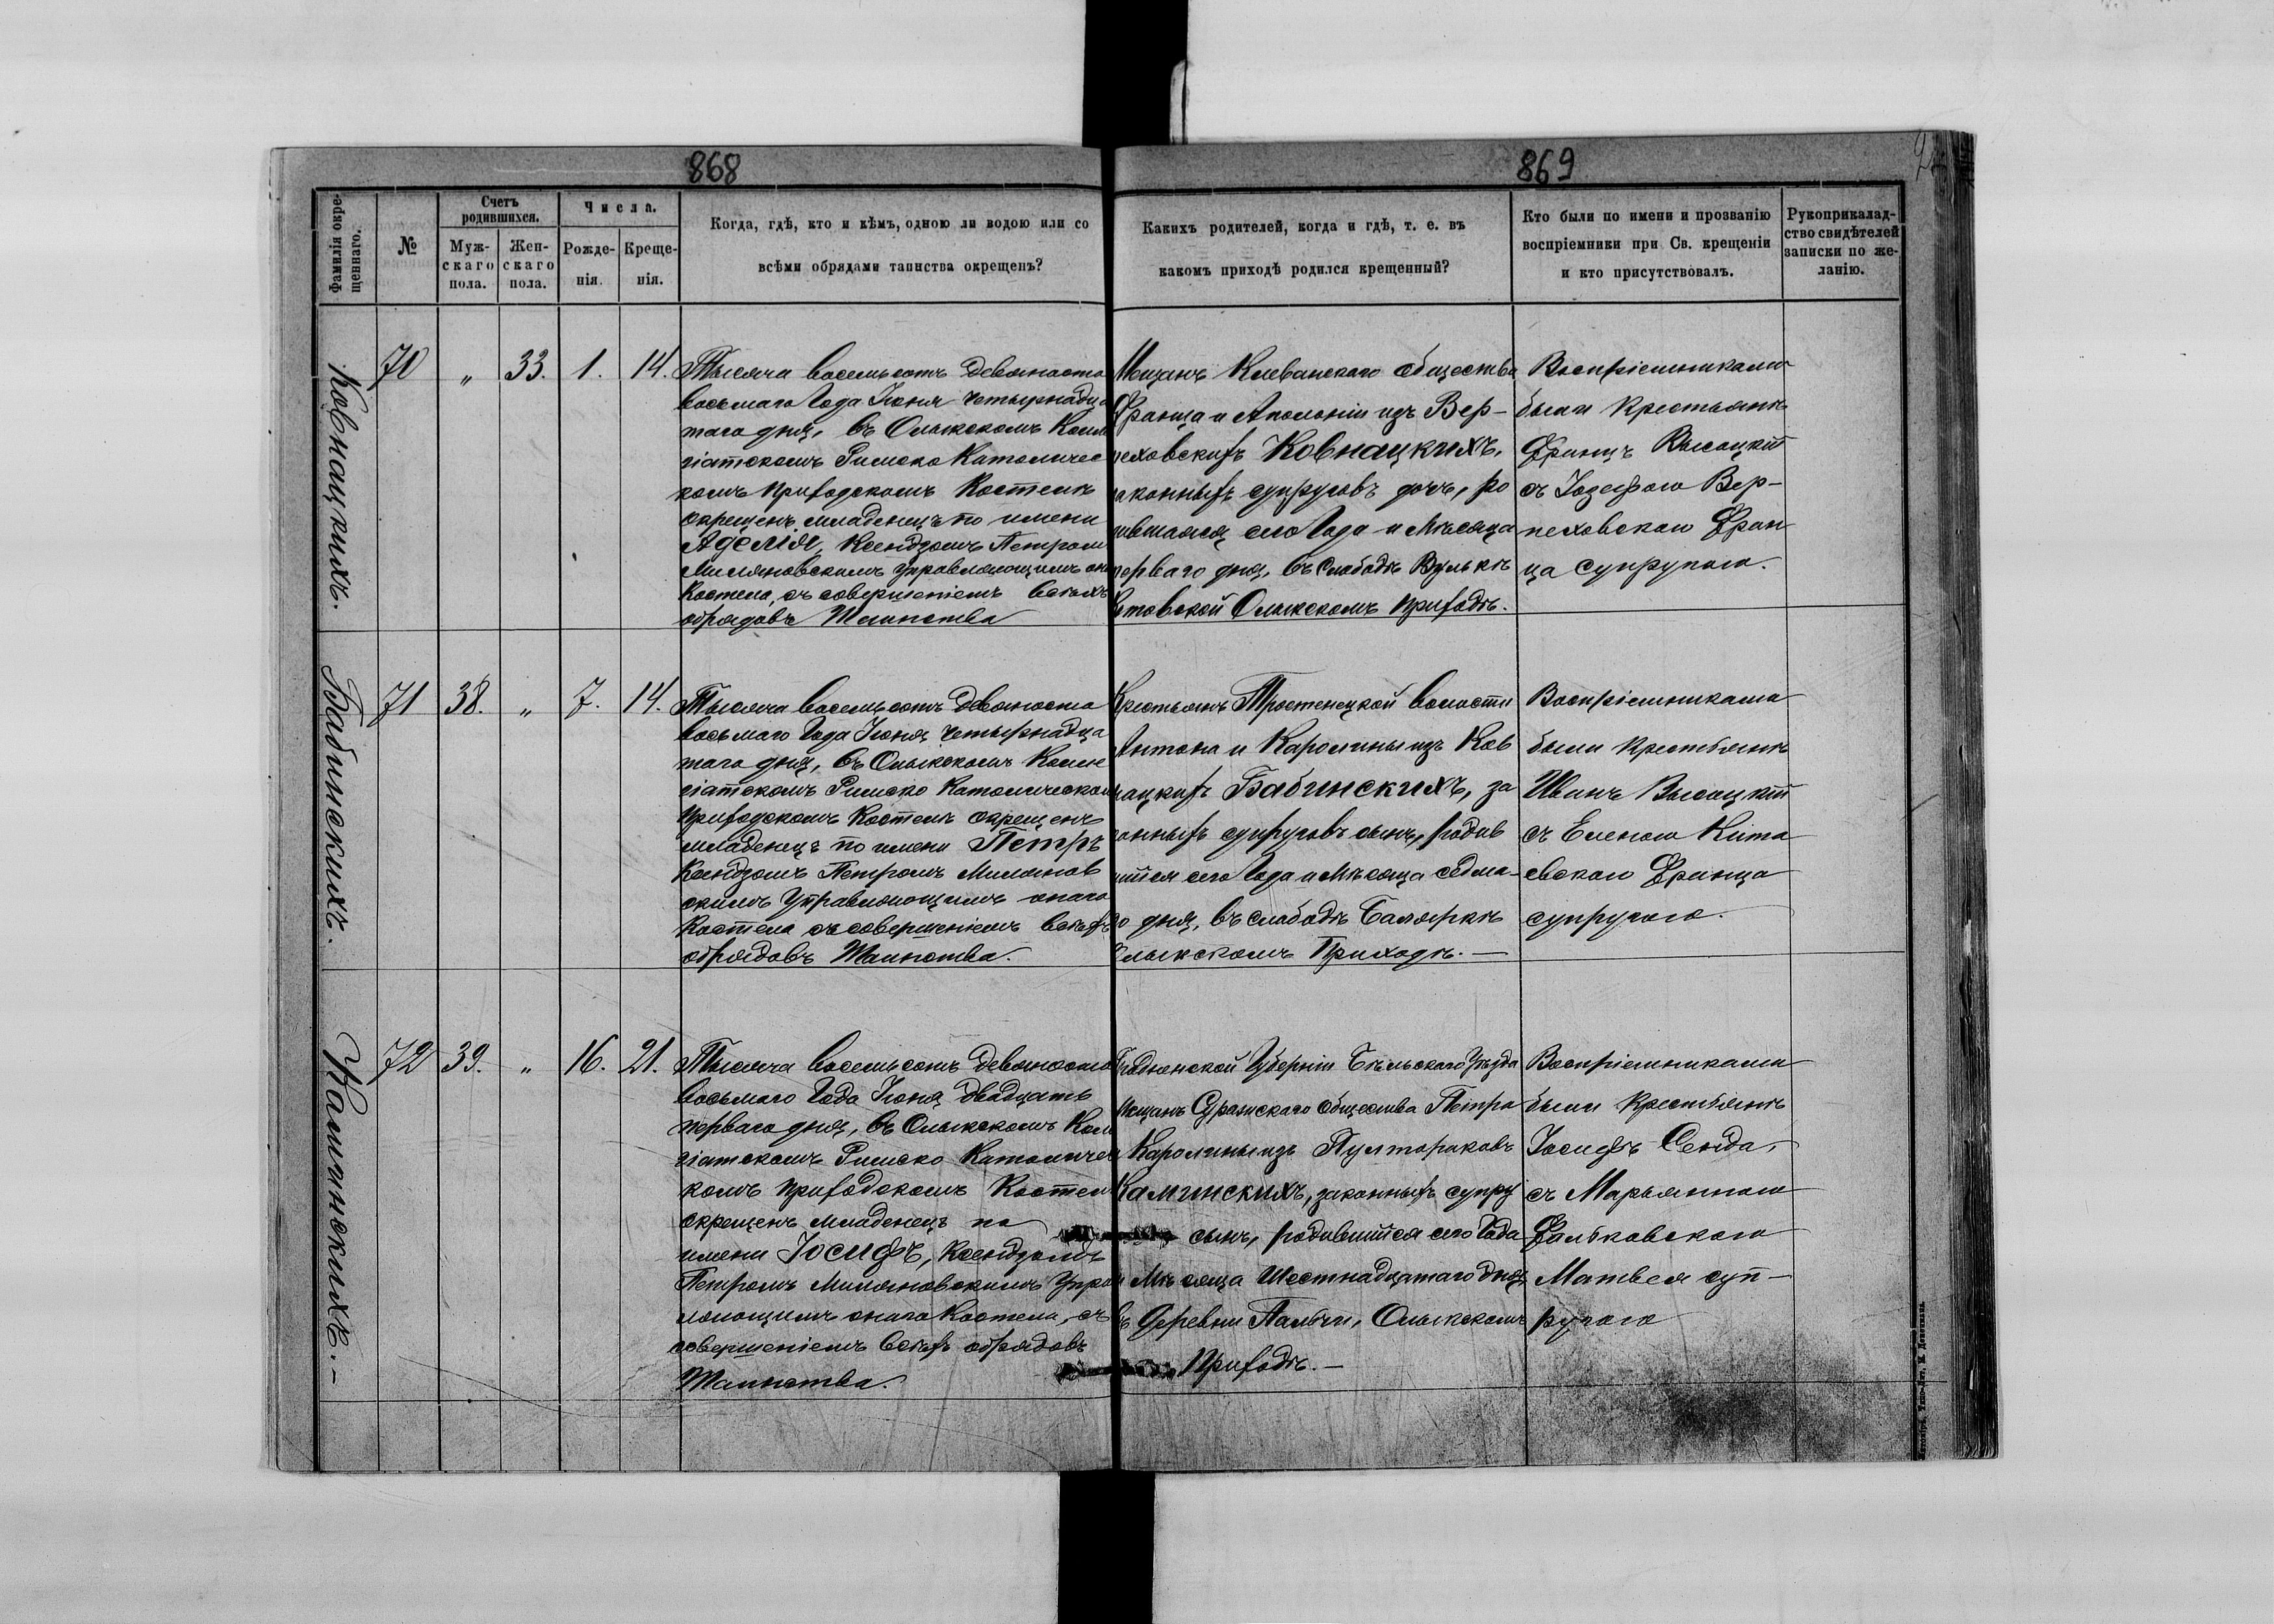 868
869
Фамилія окре-
щеннаго.
№
Счетъ
родившихся.
Муж-
скаго
пола.
Жен-
скаго
пола.
Числа.
Рожде-
нія.
Креще-
нія.
Когда, гдѣ, кто и кѣмъ, одною ли водою или со
всѣми обрядами таинства окрещенъ?
Какихъ родителей, когда и гдѣ, т. е. въ
какомъ приходѣ родился крещенный?
Кто были по имени и прозванію
воспріемники при Св. крещеніи
и кто присутствовалъ.
Рукоприклад-
ство свидѣтелей
записки по же-
ланію.
Ковнацкихъ.
70
"
33.
1.
14.
Тысяча восемьсотъ девяносто
восьмаго Года Іюня четырнадца
таго дня, въ Олыкскомъ Колле
гіатскомъ Римско Католичес
комъ приходскомъ Костелѣ
окрещенъ младенецъ по имени
Аделія, Ксендзомъ Петромъ
Миляновскимъ Управляющимъ
Костела, съ совершеніемъ всѣхъ
обрядовъ Таинства
Мещанъ Клеванскаго общества
Франца и Аполоніи изъ Вер-
пеховскихъ Ковнацкихъ,
законныхъ супруговъ дочь, ро
дившаяся сего Года и Мѣсяца
перваго дня, въ слободѣ Вулькѣ
Олыкскомъ приходѣ.
Воспріемниками
были крестьяне
Францъ Высоцкій
съ Іозефою Вер-
пеховскою Фран
ца супругою.
Бабинскихъ.
71
38.
"
7.
14.
Тысяча восемьсотъ девяносто
восьмаго Года Іюня четырнадца
таго дня, въ Олыкскомъ Колле
гіатскомъ Римско Католическомъ
Приходскомъ Костелѣ окрещенъ
младенецъ по имени Петръ
Ксендзомъ Петромъ Милянов
скимъ Управляющимъ онаго
Костела съ совершеніемъ всѣхъ
обрядовъ Таинства.
Крестьянъ Тростенецкой волости
Антона и Каролины изъ Ков
нацкихъ Бабинскихъ, за
конныхъ супруговъ сынъ, родив
шійся сего Года и Мѣсяца седма-
го дня, въ слободѣ Балярке
Олыкскомъ Приходѣ.—
Воспріемниками
были крестьяне
Иванъ Высоцкій
съ Еленою Кита
евскаго Франца
супругою.
Каминскихъ.—
72
39.
"
16.
21.
Тысяча восемьсотъ девяносто
восьмаго Года Іюня двадцать
перваго дня, въ Олыкскомъ Кол
гіатскомъ Римско Католичес
комъ приходскомъ Костел
окрещенъ младенецъ по
имени Іосифъ, Ксендзомъ
Петромъ Миляновскимъ Управ
ляющимъ онаго Костела, съ
совершеніемъ всѣхъ обрядовъ
Таинства.
Гродненской Губерніи Бѣльскаго Уѣзда
Мещанъ Суражскаго общества Петра
Каролины изъ Пултораковъ
Каминскихъ, законныхъ супру
сынъ, родившійся сего Года
Мѣсяца Шестнадцатаго дня,
въ Деревни Пальчи, Олыкскомъ
Приходѣ.—
Воспріемниками
были крестьяне
Іосифъ Сенда,
съ Марьянною
Фальковскаго
Матвея суп-
ругою